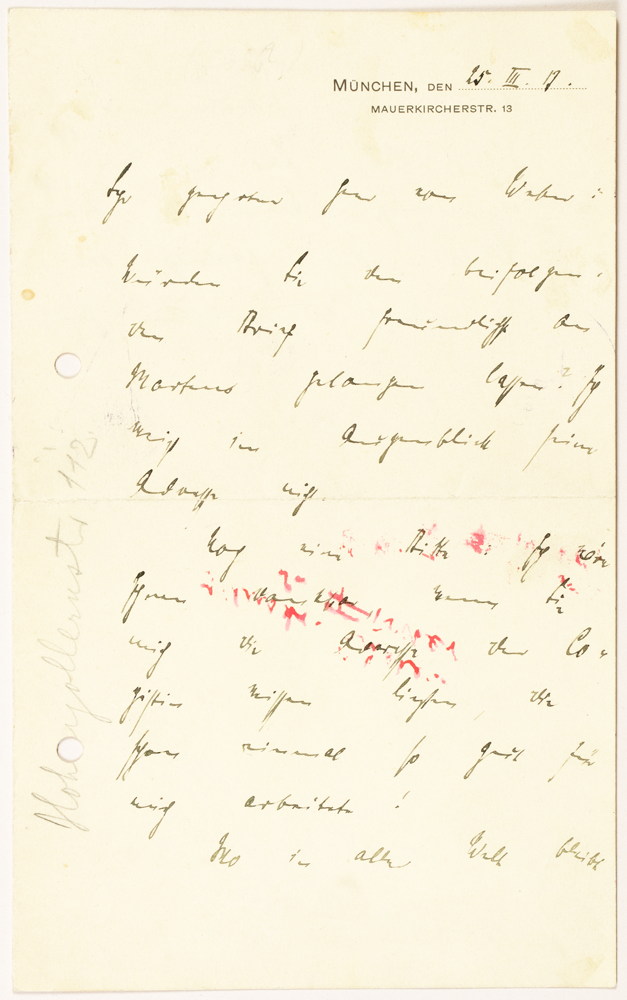 MÜNCHEN, DEN 25. III. 17.
MAUERKIRCHERSTR. 13
Sehr geehrter Herr von Weber:
Würden Sie den beifolgen-
den Brief freundlichst an
Martens gelangen lassen? Ich
weiß im Augenblick seine
Adresse nicht.
Noch eine Bitte: Ich wäre
Ihnen dankbar wenn Sie
mich die Adresse der Co-
pistin wissen ließen, die
schon einmal so gut für
mich arbeitete!
Wo in aller Welt bleibt
Hohenzollernstr 112